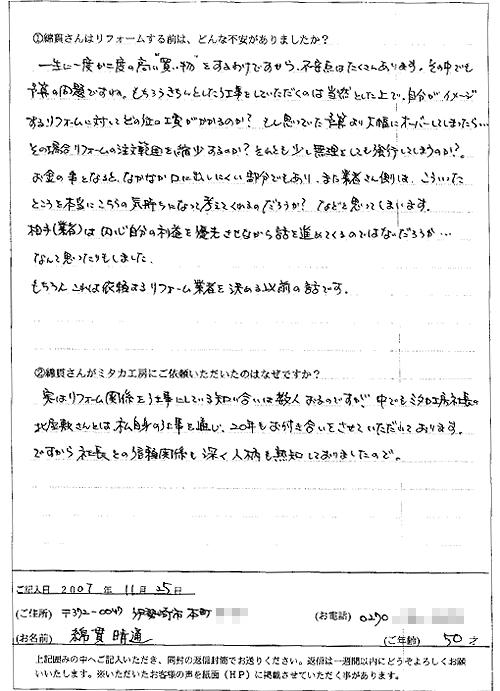 ①綿貫さんはリフォームする前は、どんな不安がありましたか？
一生に一度か二度の高い"買い物"をするわけですから、不安点はたくさんあります。その中でも
予算の問題ですね。もちろんきちんとした工事をしていただくのは当然とした上で、自分がイメージ
するリフォームに対してどの位の工費がかかるのか？もし思っていた予算より大幅にオーバーしてしまったら…
その場合リフォームの注文範囲を縮少するのか？それとも少し無理をしても強行してしまうのか？。
お金の事となると、なかなか口に出しにくい部分でもあり、また業者さん側は、こういった
ところを本当にこちらの気持ちになって考えてくれるのだろうか？などと思ってしまいます。
相手(業者)は内心自分の利益を優先させながら話を進めてくるのではないだろうか…
なんて思ったりもしました。
もちろんこれは依頼するリフォーム業者を決める以前の話です。
②綿貫さんがミタカ工房にご依頼いただいたのはなぜですか？
実はリフォーム関係を仕事にしている知り合いは数人おるのですが、中でもミタカ工房社長の
北座敷さんとは、私自身の仕事を通じ、20年もお付き合いをさせていただいております。
ですから社長との信頼関係も深く人柄も熟知しておりましたので。
ご記入日 2007 年 11月 25日
(ご住所) 〒372-0047 伊勢崎市本町 (お電話) 0270
(お名前) 綿貫 晴通 (ご年齢) 50才
上記囲みの中へご記入いただき、同封の返信封筒でお送りください。返信は一週間以内にどうぞよろしくお願
いいたします。※いただいたお客様の声を紙面（HP）に掲載させていただく事があります。